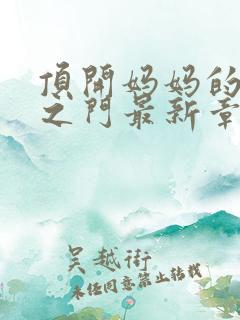 頂開妈妈的
之门最新章
吴越街
未经同意禁止转载